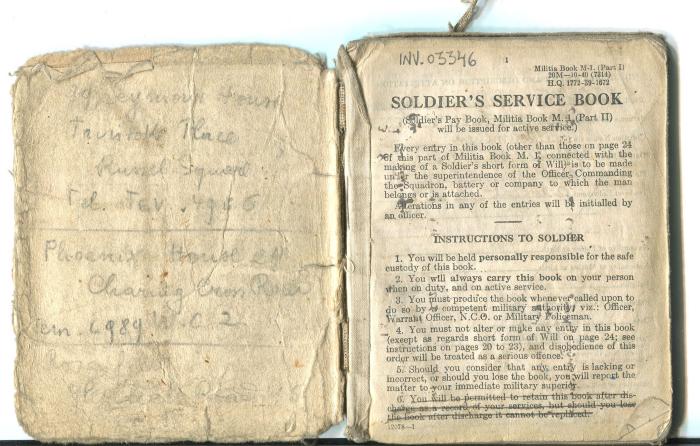 Seymour House
Tavistock Place
Russell Square
Tel.
Phoenix House
Charing Cross
INV. 03346
1
Militia Book M-1. (Part I)
20M—10-40 (7314)
H.Q. 1772-39-1672
SOLDIER'S SERVICE BOOK
(Soldier's Pay Book, Militia Book M. 1 (Part II)
will be issued for active service.)
Every entry in this book (other than those on page 24
of this part of Militia Book M. 1, connected with the
making of a Soldier's short form of Will) is to be made
under the superintendence of the Officer Commanding
the Squadron, battery or company to which the man
belongs or is attached.
Alterations in any of the entries will be initialled by
an officer.
INSTRUCTIONS TO SOLDIER
1. You will be held personally responsible for the safe
custody of this book.
2. You will always carry this book on your person
when on duty, and on active service.
3. You must produce the book whenever called upon to
do so by a competent military authority, viz.: Officer,
Warrant Officer, N.C.O. or Military Policeman.
4. You must not alter or make any entry in this book
(except as regards short form of Will on page 24; see
instructions on pages 20 to 23), and disobedience of this
order will be treated as a serious offence.
5. Should you consider that any entry is lacking or
incorrect, or should you lose the book, you will report the
matter to your immediate military superior.
6. You will be permitted to retain this book after dis-
charge as a record of your services, but should you lose
the book after discharge it cannot be replaced.
12078—1